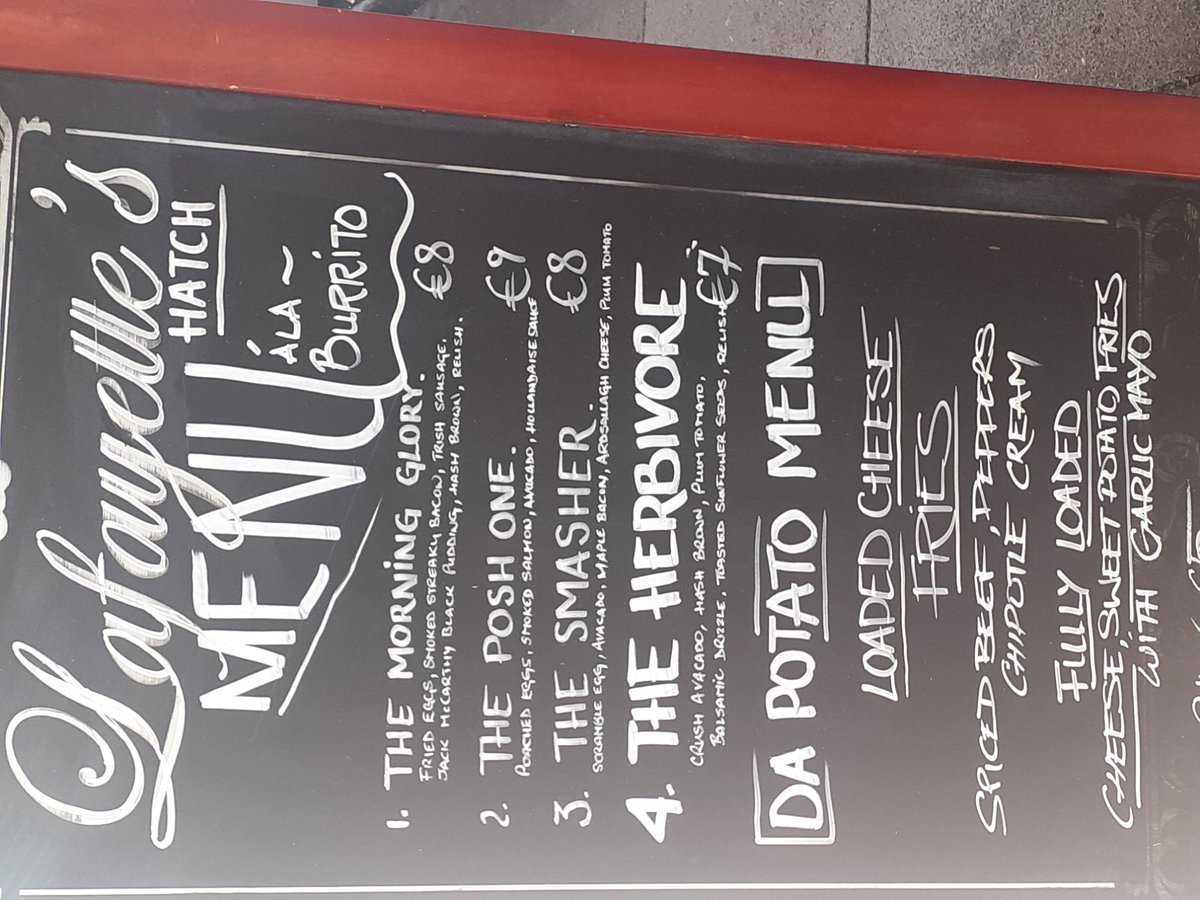 Lafayette's
HATCH
MENU
ÁLA~
BURRITO
1. THE MORNING GLORY. €8
FRIED EGGS, SMOKED STREAKY BACON, IRISH SAUSAGE.
JACK McCARTHY BLACK PUDDING, HASH BROWN, RELISH.
2. THE POSH ONE. €9
POACHED EGGS, SMOKED SALMON, AVACADO, HOLLANDAISE SAUCE
3. THE SMASHER. €8
SCRAMBLE EGG, AVACADO, MAPLE BACON, ARDSALLAGH CHEESE, PLUM TOMATO
4. THE HERBIVORE €7
CRUSH AVACADO, HASH BROWN, PLUM TOMATO,
BALSAMIC DRIZZLE, TOASTED SUNFLOWER SEEDS, RELISH
DA POTATO MENU
LOADED CHEESE
FRIES
SPICED BEEF, PEPPERS
CHIPOTLÉ CREAM
FULLY LOADED
CHEESE, SWEET POTATO FRIES
WITH GARLIC MAYO